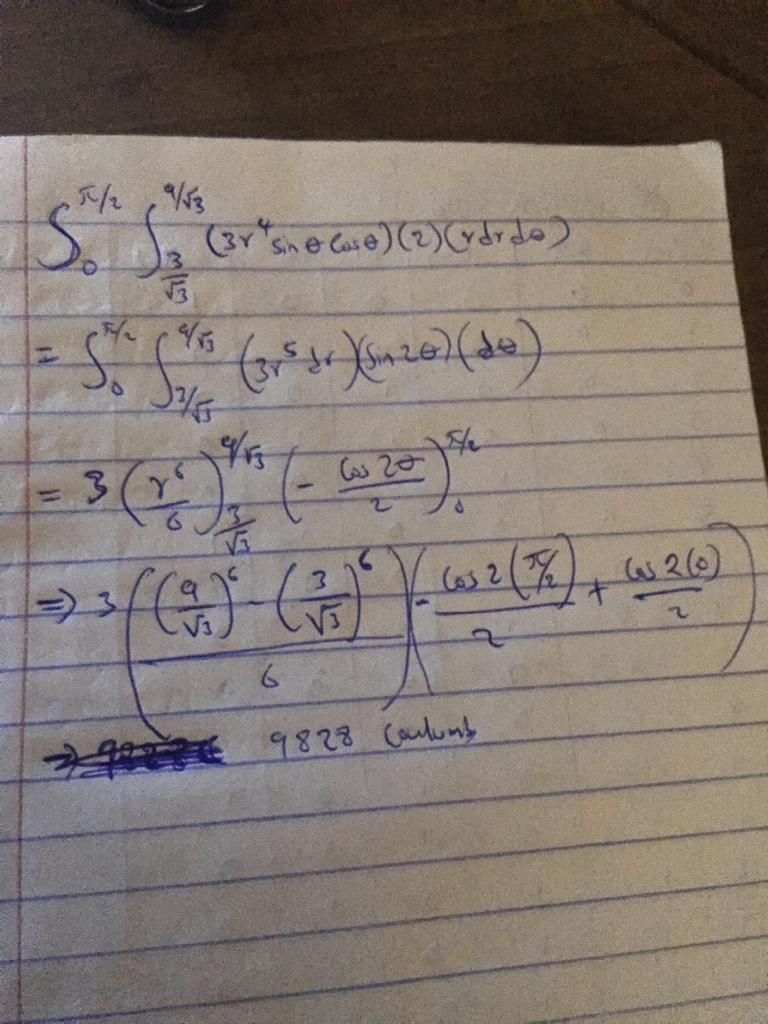 ∫₀^π/2 ∫_3/√3^9/√3 (3r⁴ sin θ cos θ)(2)(r dr dθ)
= ∫₀^π/2 ∫_3/√3^9/√3 (3r⁵ dr)(sin 2θ)(dθ)
= 3 (r⁶/6)_3/√3^9/√3 (- cos 2θ/2)₀^π/2
⇒ 3 (((9/√3)⁶ - (3/√3)⁶)/6) (- cos 2(π/2)/2 + cos 2(0)/2)
⇒ 9828 Coulumb